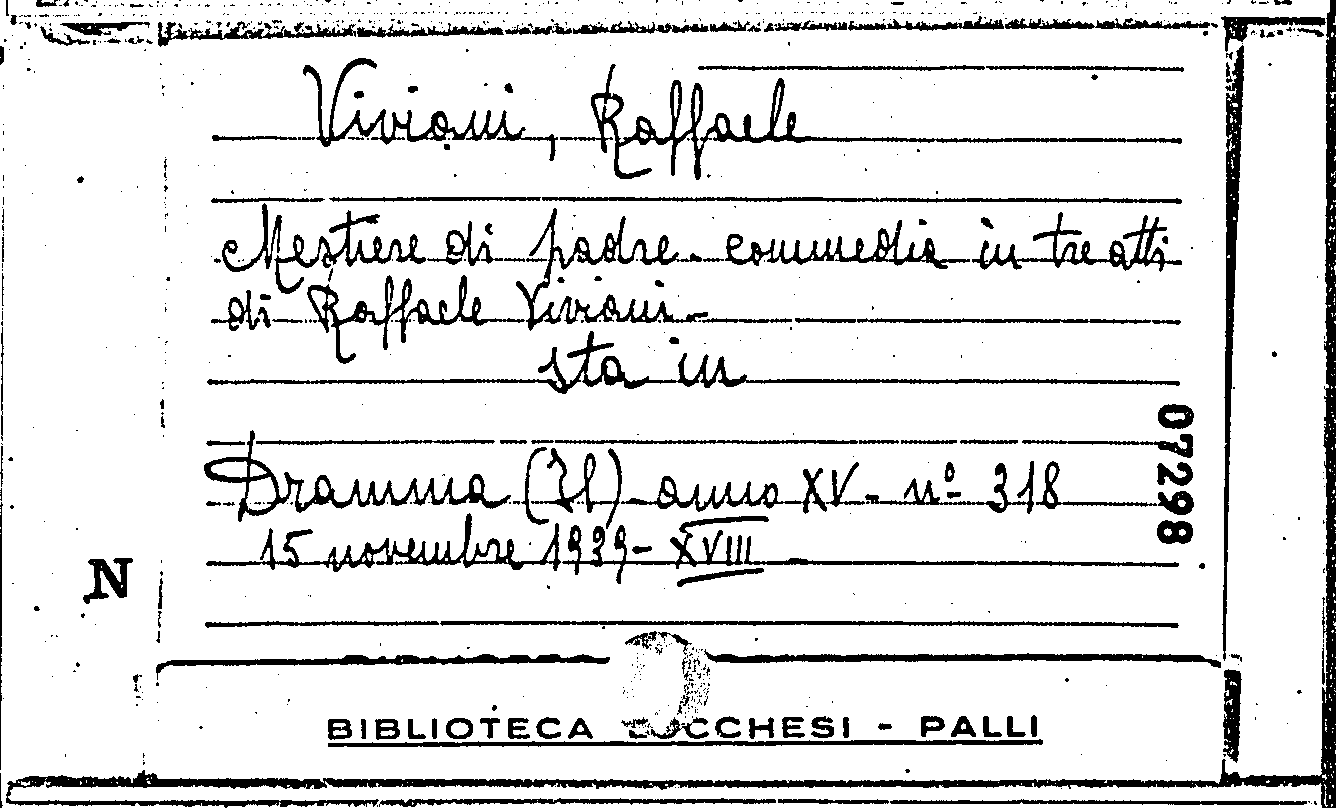 Viviani, Raffaele
Mestiere di padre - commedia in tre atti
di Raffaele Viviani -
sta in
Dramma (Il) - anno XV - nº 318
15 novembre 1939 - XVIII
07298
N
BIBLIOTECA LUCCHESI - PALLI